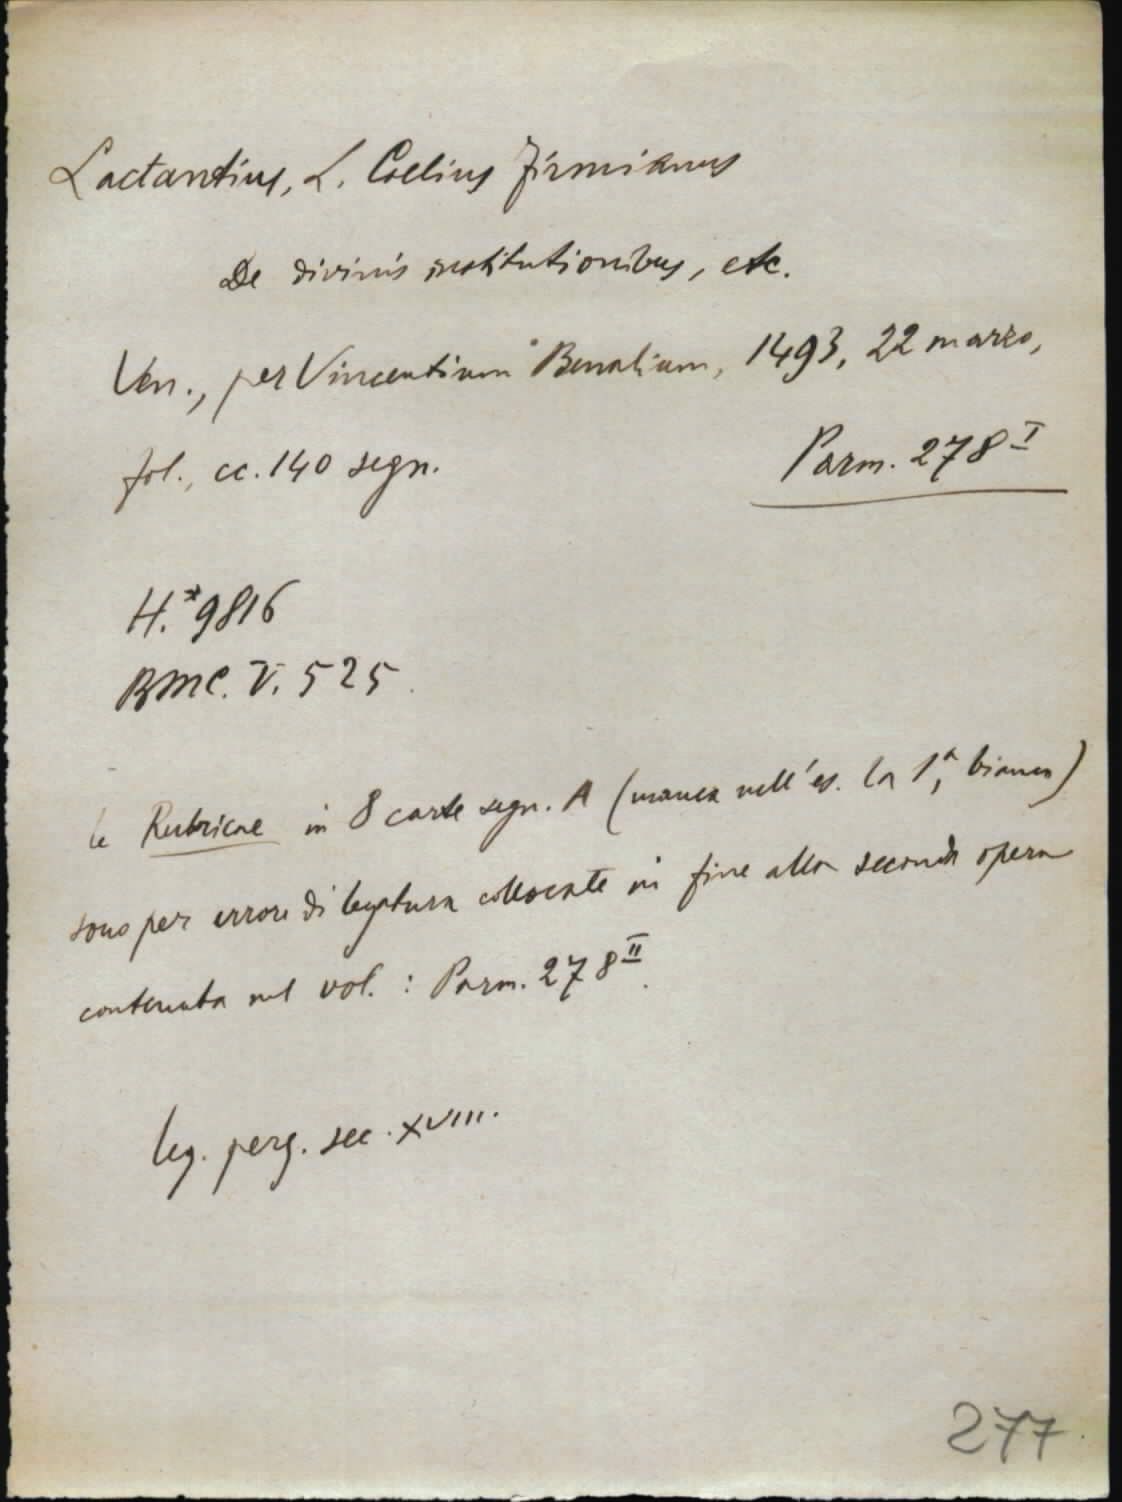 Lactantius, L. Coelius Firmianus
De divinis institutionibus, etc.
Ven., per Vincentium Benalium, 1493, 22 marzo,
fol., cc. 140 segn.
Parm. 278 I
H.*9816
BMC. V. 525.
le Rubricae in 8 carte segn. A (manca nell'es. la 1ª, bianca)
sono per errore di legatura collocate in fine alla seconda opera
contenuta nel vol. : Parm. 278 II.
leg. perg. sec. XVIII.
277